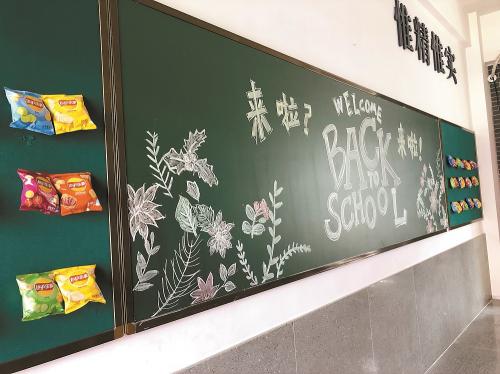 惟精惟实
来啦？
WELCOME
BACK
TO
SCHOOL
来啦！